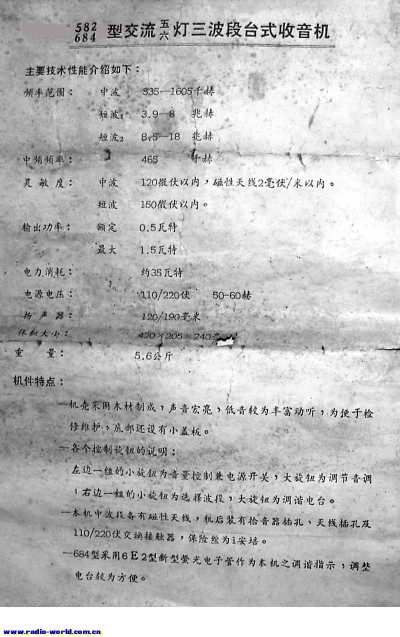 582/684 型交流 五/六 灯三波段台式收音机
主要技术性能介绍如下：
频率范围： 中波 535—1605千赫
短波1 3.9—8 兆赫
短波2 8.5—18 兆赫
中频频率： 465 千赫
灵敏度： 中波 120微伏以内，磁性天线2毫伏/米以内。
短波 150微伏以内。
输出功率： 额定 0.5瓦特
最大 1.5瓦特
电力消耗： 约35瓦特
电源电压： 110/220伏 50-60赫
扬声器： 120/190毫米
体积大小： 420×205×240
重量： 5.6公斤
机件特点：
一机壳采用木材制成，声音宏亮，低音较为丰富动听，为便于检
修维护，底部还设有小盖板。
一各个控制旋钮的说明：
左边一组的小旋钮为音量控制兼电源开关，大旋钮为调节音调
，右边一组的小旋钮为选择波段，大旋钮为调谐电台。
一本机中波段备有磁性天线，机后装有拾音器插孔、天线插孔及
110/220伏交换接触器，保险丝为1安培。
一684型采用6E2型新型萤光电子管作为本机之调谐指示，调整
电台较为方便。
www.radio-world.com.cn